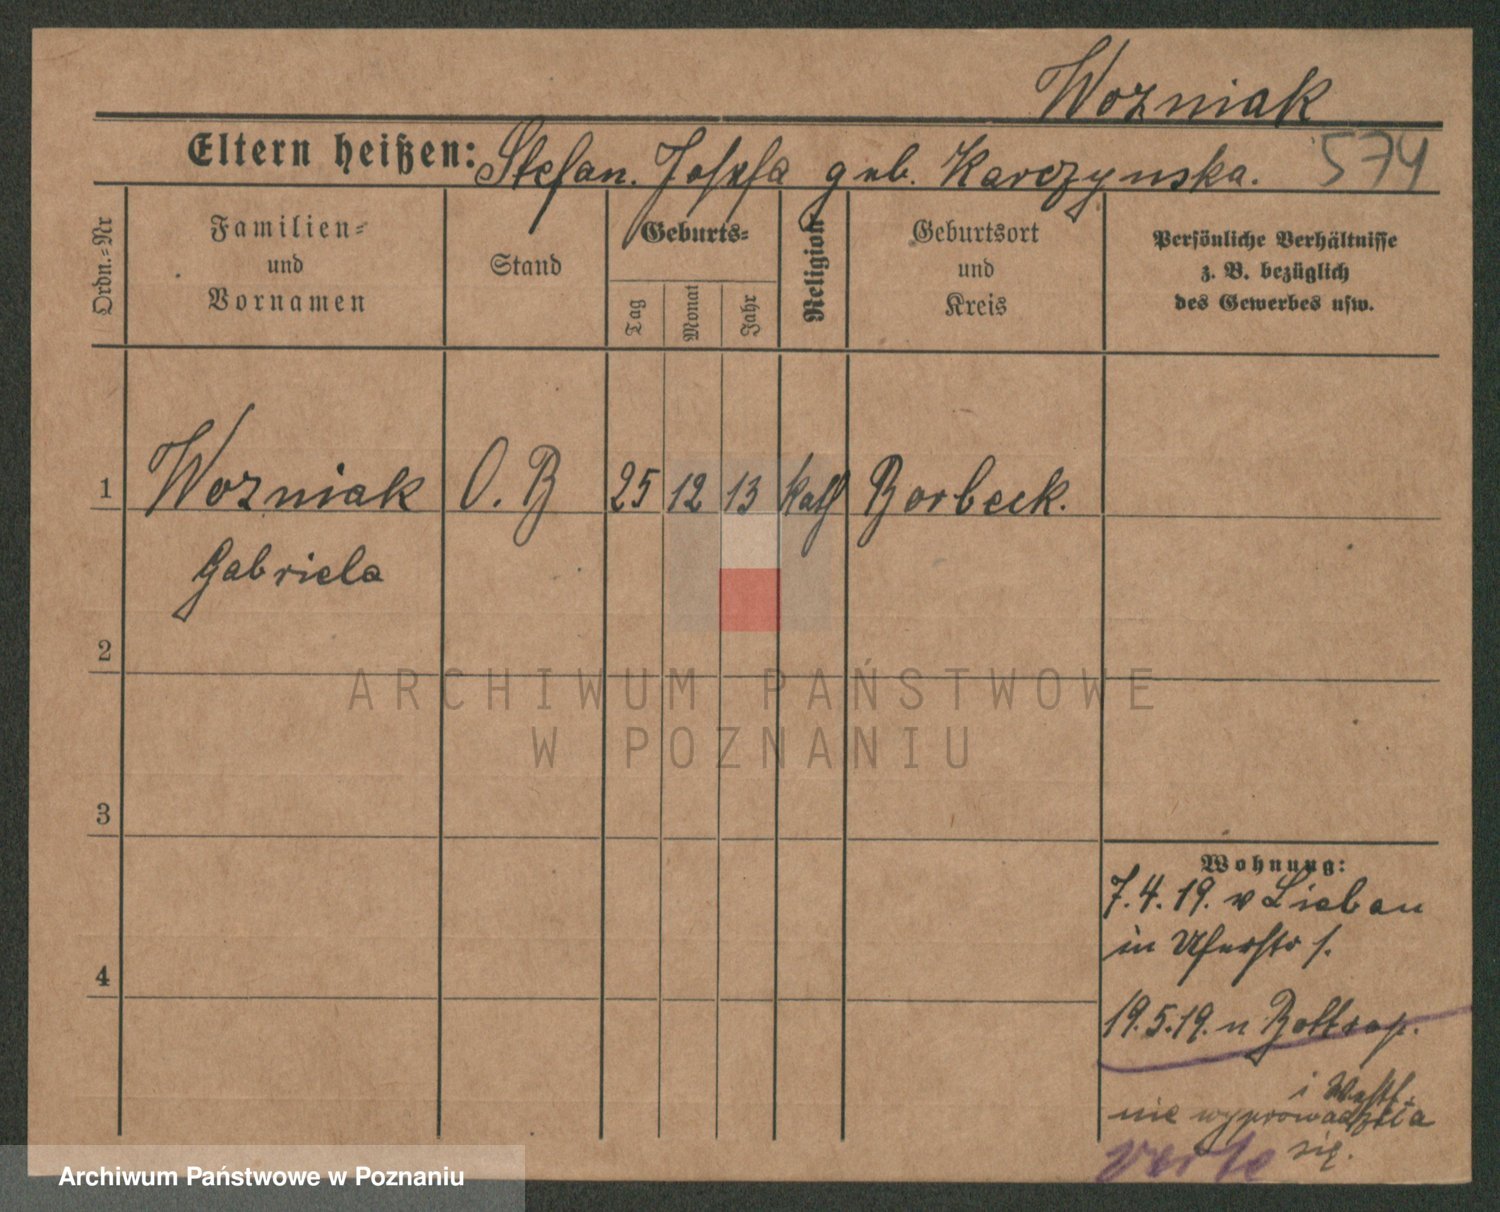 Wozniak
Eltern heißen: Stefan. Josefa geb. Karczynska. 574
Ordn.=Nr
Familien=
und
Vornamen
Stand
Geburts=
Tag
Monat
Jahr
Religion
Geburtsort
und
Kreis
Persönliche Verhältnisse
z. B. bezüglich
des Gewerbes usw.
1 Wozniak O. B 25 12 13 kath Borbeck.
Gabriela
2
ARCHIWUM PAŃSTWOWE
W POZNANIU
3
Wohnung:
7.4.19. v Lieban
in Uferstr 1.
4
19.5.19. n Bottrop.
i Westf.
nie wyprowadziła
się.
verte
Archiwum Państwowe w Poznaniu